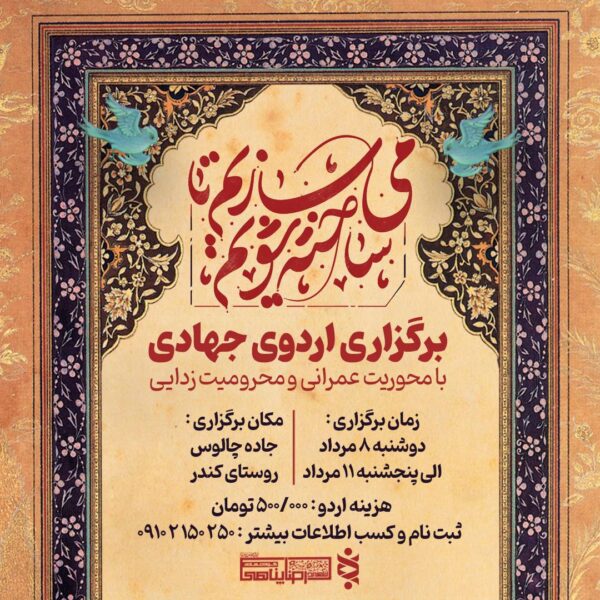 می سازیم تا
ساخته شویم
برگزاری اردوی جهادی
با محوریت عمرانی و محرومیت زدایی
زمان برگزاری :
دوشنبه ۸ مرداد
الی پنجشنبه ۱۱ مرداد
مکان برگزاری :
جاده چالوس
روستای کندر
هزینه اردو : ۵۰۰/۰۰۰ تومان
ثبت نام و کسب اطلاعات بیشتر : ۰۹۱۰۲۱۵۰۲۵۰